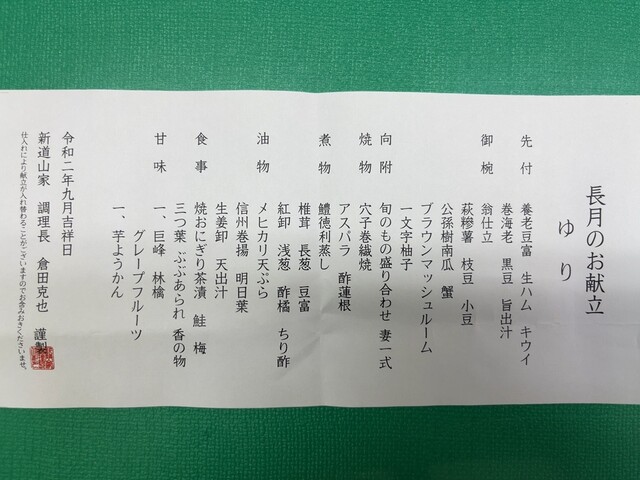 長月のお献立
ゆり
先付 養老豆富 生ハム キウイ
巻海老 黒豆 旨出汁
御椀 翁仕立
萩糝薯 枝豆 小豆
公孫樹南瓜 蟹
ブラウンマッシュルーム
一文字柚子
向附 旬のもの盛り合わせ 妻一式
焼物 穴子巻繊焼
アスパラ 酢蓮根
煮物 鱧徳利蒸し
椎茸 長葱 豆富
紅卸 浅葱 酢橘 ちり酢
油物 メヒカリ天ぷら
信州巻揚 明日葉
生姜卸 天出汁
食事 焼おにぎり茶漬 鮭 梅
三つ葉 ぶぶあられ 香の物
甘味 一、巨峰 林檎
グレープフルーツ
一、芋ようかん
令和二年九月吉祥日
新道山家 調理長 倉田克也 謹製
仕入れにより献立が入れ替わることがございますのでお含みおきくださいませ。